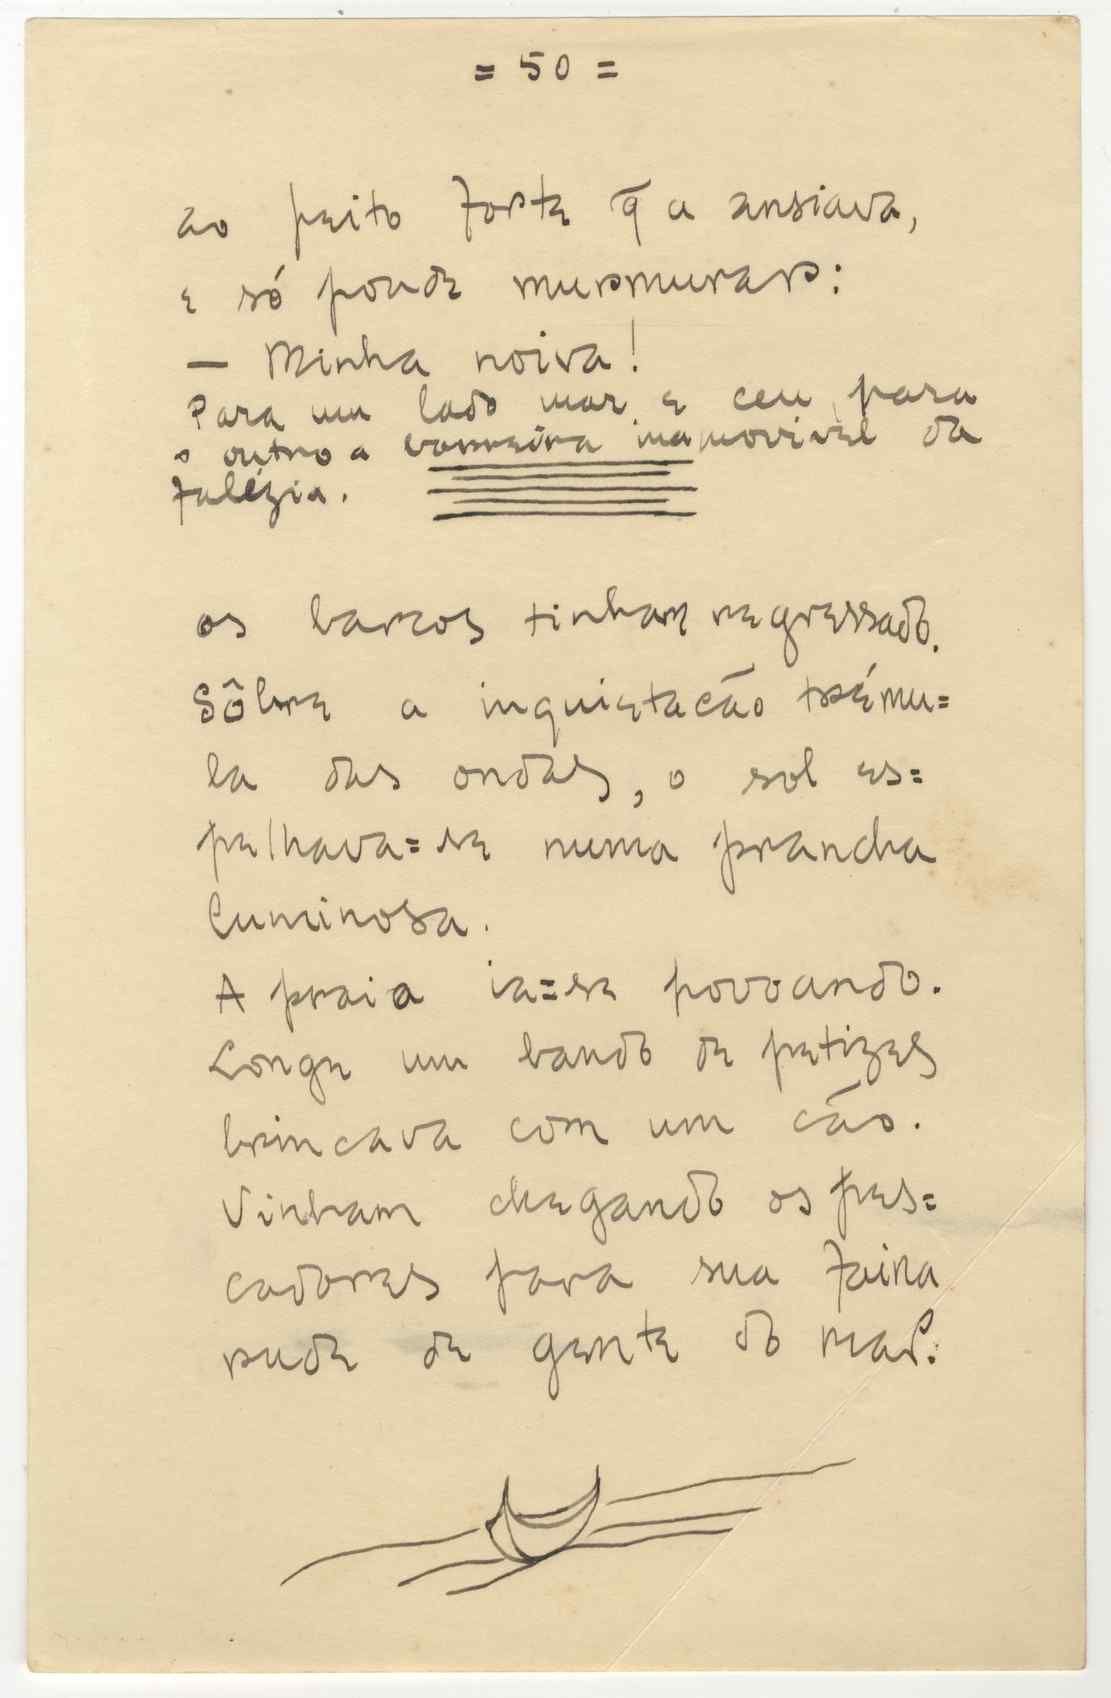 = 50 =
ao peito forte q̃ a ansiava,
e só poude murmurar:
— Minha noiva!
Para um lado mar e ceu, para
o outro a barreira inamovivel da
falézia.
os barcos tinham regressado.
Sôbre a inquietacão trému=
la das ondas, o sol es=
pelhava=se numa prancha
luminosa.
A praia ia=se povoando.
Longe um bando de petizes
brincava com um cão.
Vinham chegando os pes=
cadores para sua faina
rude de gente do mar.